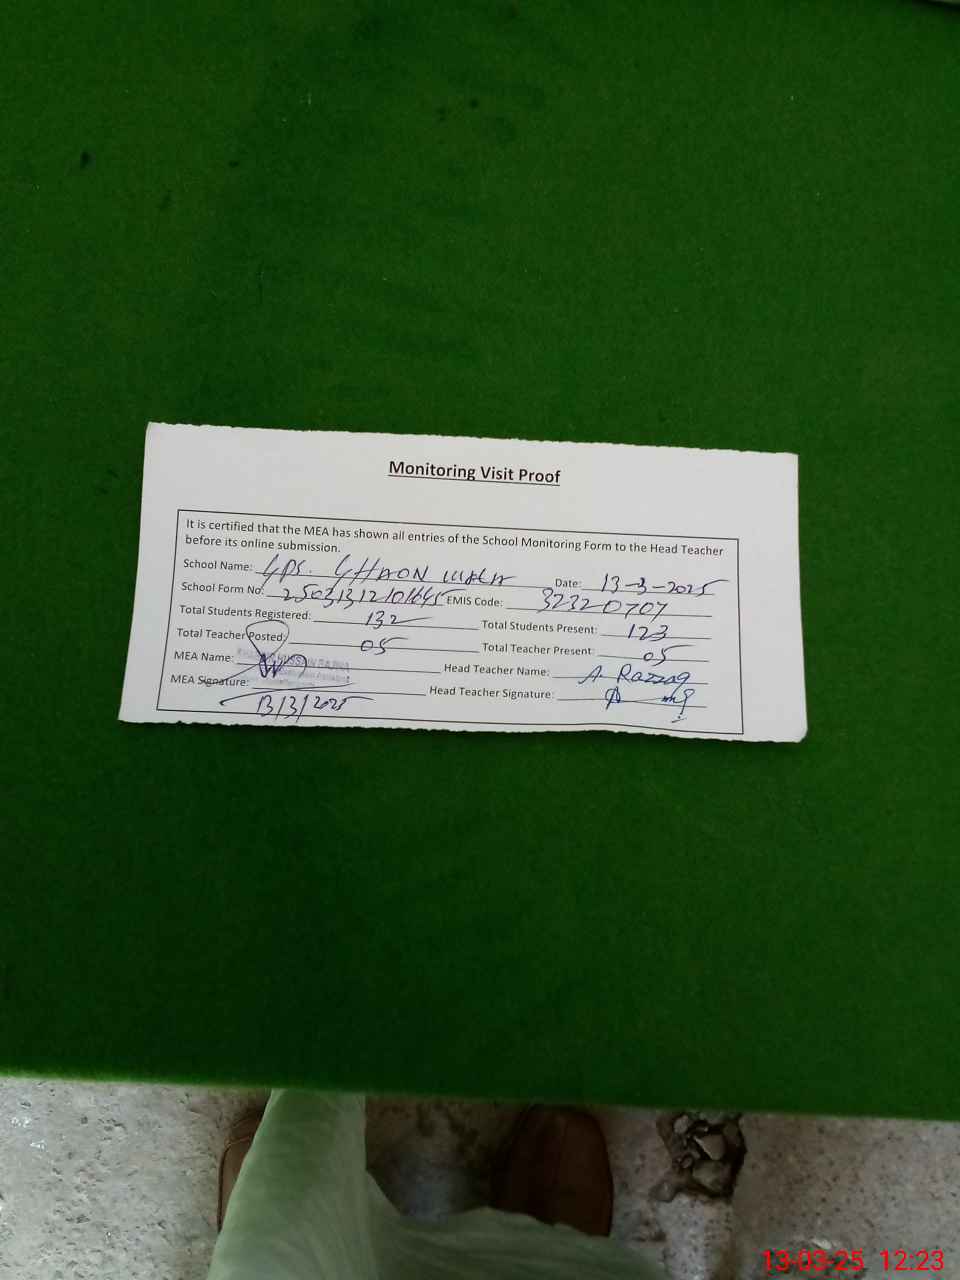 Monitoring Visit Proof
It is certified that the MEA has shown all entries of the School Monitoring Form to the Head Teacher
before its online submission.
School Name: GPS. GHAON WALA Date: 13-3-2025
School Form No: EMIS Code: 32320707
Total Students Registered: 132 Total Students Present: 123
Total Teacher Posted: 05 Total Teacher Present: 05
MEA Name: HUSSAIN Head Teacher Name: A. Razzaq
MEA Signature: Head Teacher Signature:
13/3/2025
13-03-25 12:23